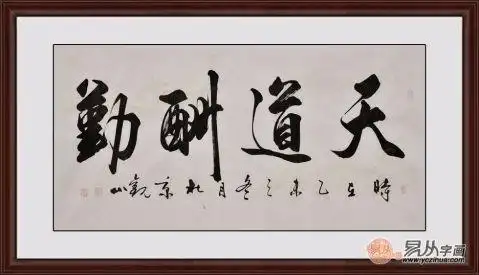 天道酬勤
時在乙未之冬月北京觀山
易从字画
www.yczihua.com